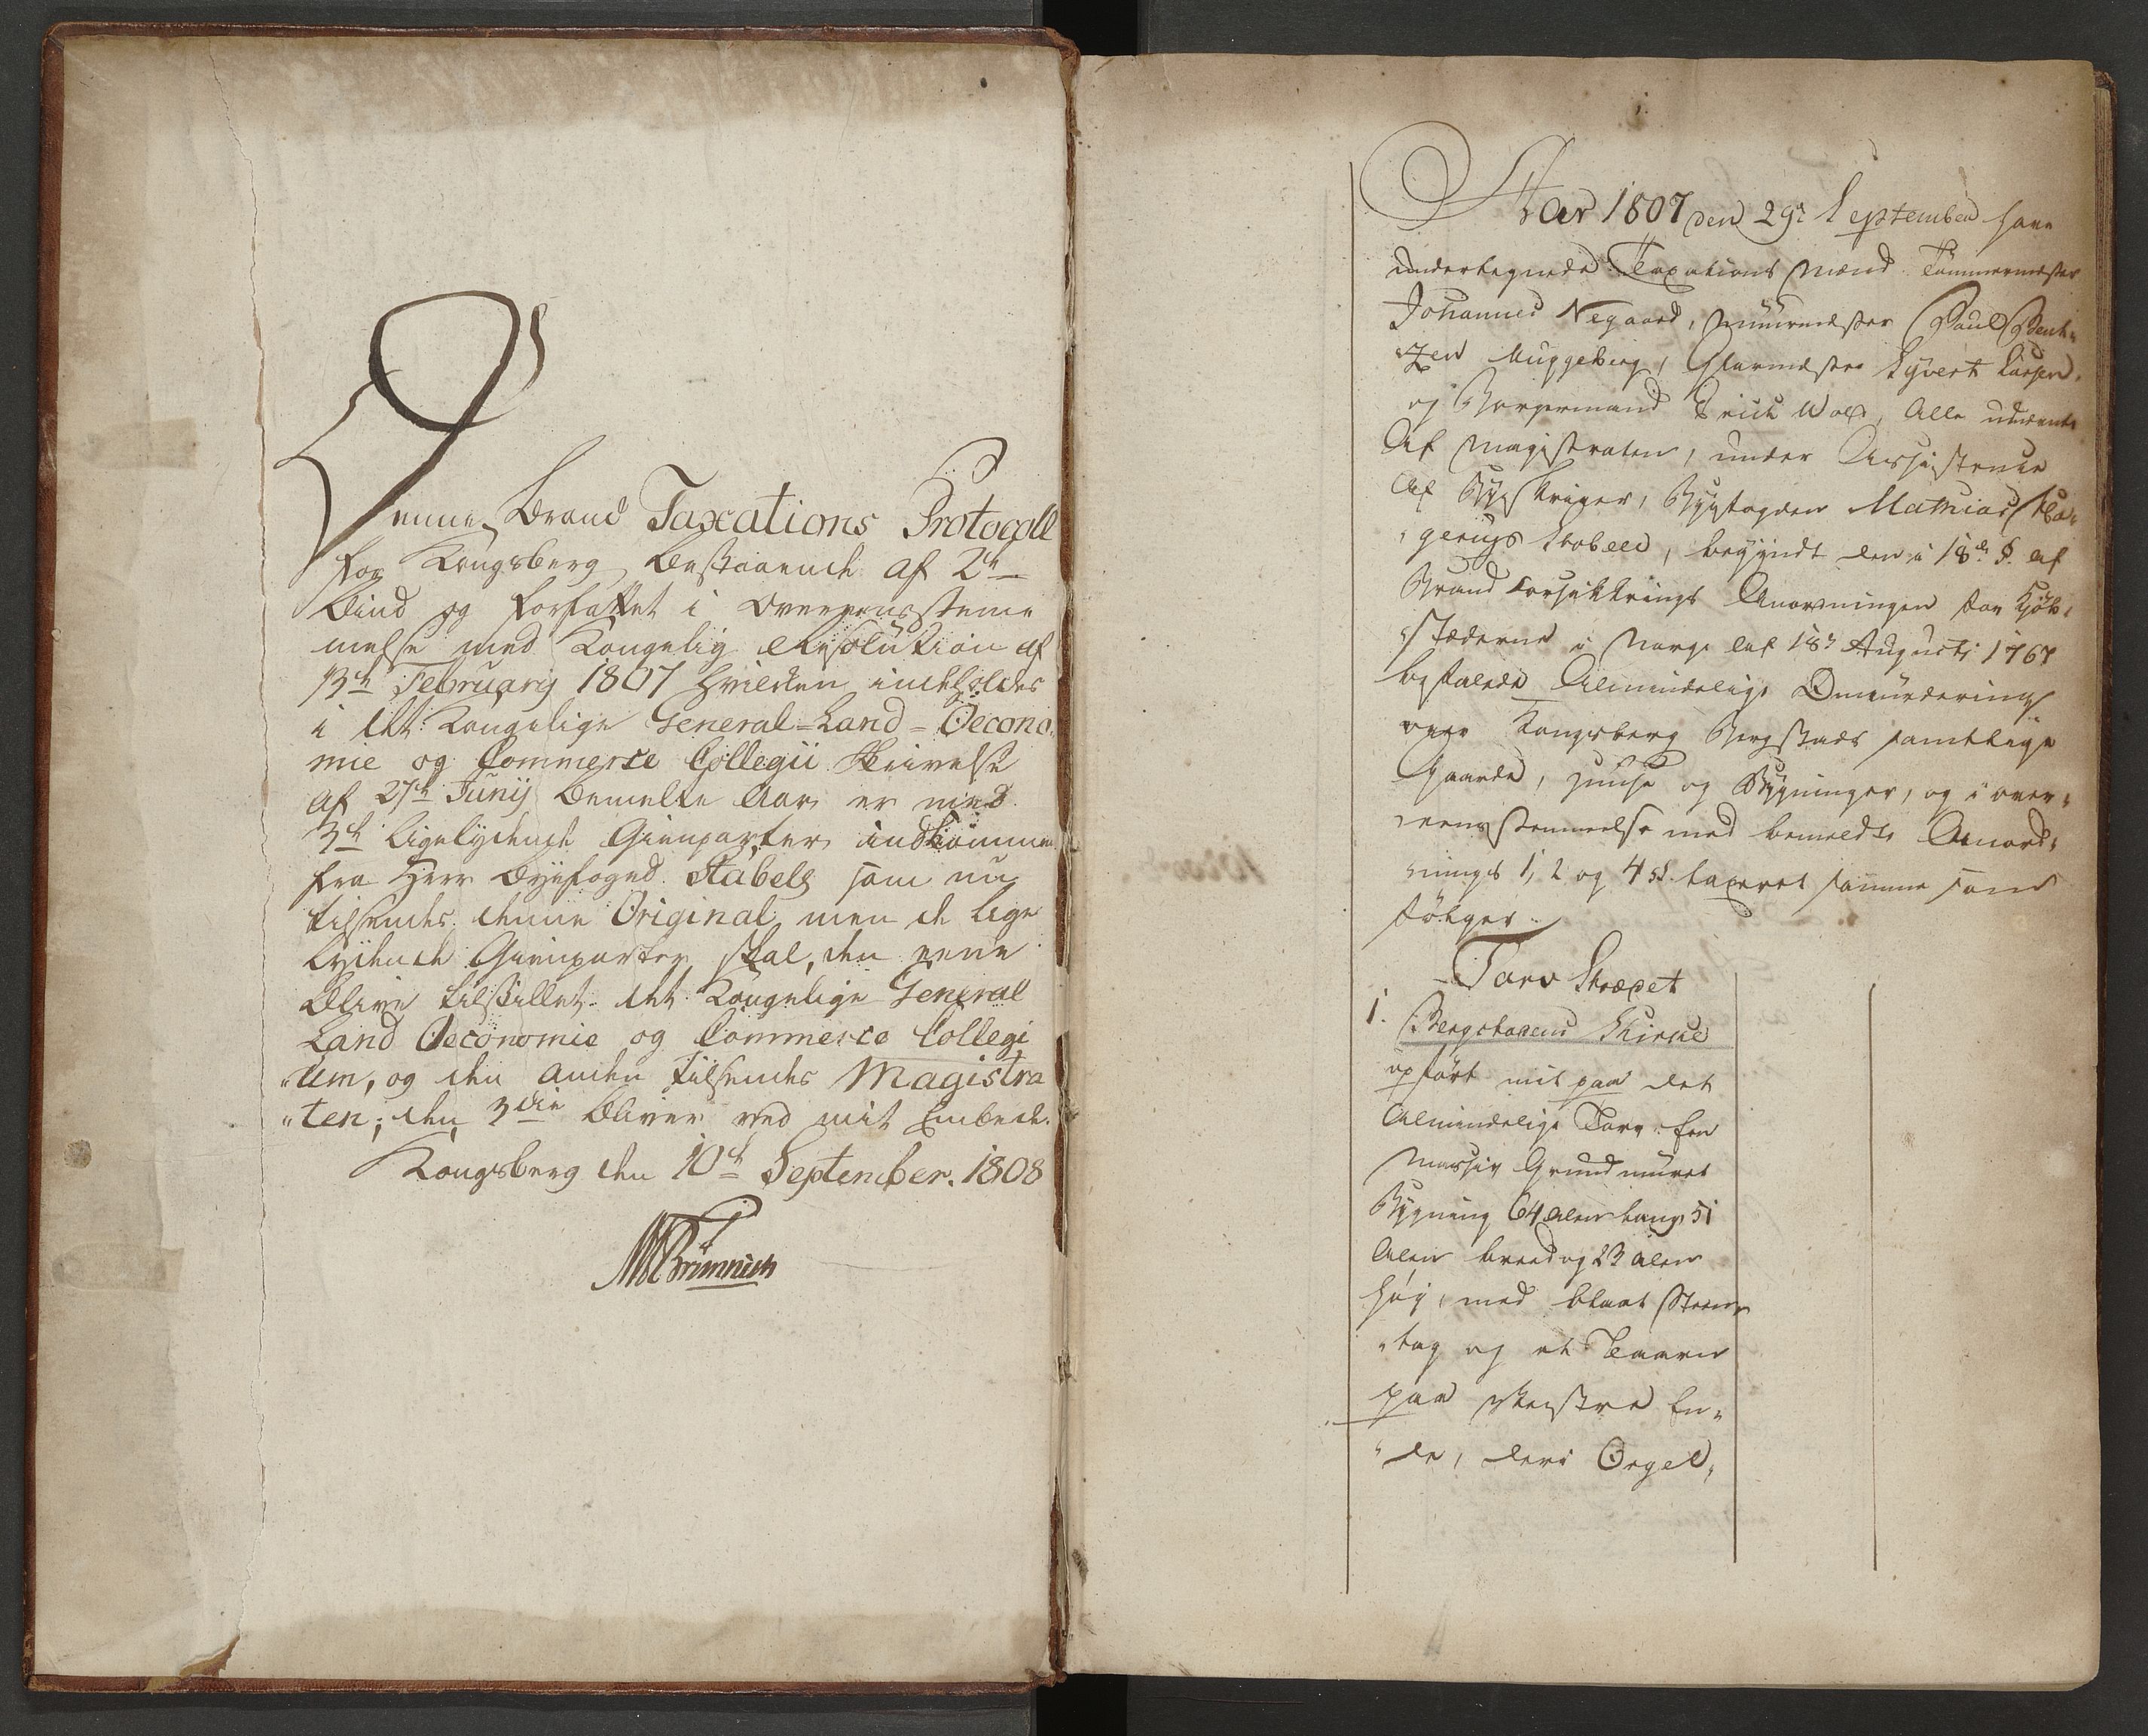 Denne Brand Taxations Protocoll
for Kongsberg bestaaende af 2de
Bind og forfattet i Overeensstem
melse med Kongelig Resolution af
13de Februarij 1807 hvilken indeholdes
i det Kongelige General-Land-Oecono
mie og Commerce Collegii Skrivelse
af 27de Junij bemelte Aar er med
3de ligelydende Gienparter indkommen
fra Herr Byefoged Stabell som nu
tilsendes denne Original, men de lige
lydende Gienparter skal, den eene
blive tilstillet det Kongelige General
Land Oeconomie og Commerce Collegi
"um, og den anden tilsendes Magistra
"ten; den 3die bliver ved mit Embede.
Kongsberg den 10de September. 1808
MTBrünnich
1.
Aar 1807 den 29de September have
undertegnede Taxations Mænd Tømmermester
Johannes Negaard, Muurmester Paul Bent-
zen Muggeberg, Glarmester Syvert Larsen,
og Borgermand Erich Wold, Alle udnævnte
Af Magistraten, under Assistence
Af Byeskriver, Byefogden Mathias
Stabell, begyndt den i 18de §. af
Brand Forsikkrings Anordningen for Kjøb-
stæderne i Norge af 18de Augusti 1767
befalede Almindelige Omvurdering
over Kongsberg Bergstads samtlige
Gaarde, Huuse og Bygninger, og i over-
eensstemmelse med bemeldte Anord-
nings 1, 2 og 4 §. taxeret samme som
følger:
Torv Strædet
1. Bergstadens Kirke
opført mit paa det
Almindelige Torv. En
Massiv Grundmuret
Bygning 64 Alen lang 51
Alen breed og 23 Alen
høy, med blaat Steen-
"tag og et Taarn
paa Vestre En-
"de, deri Orgel,